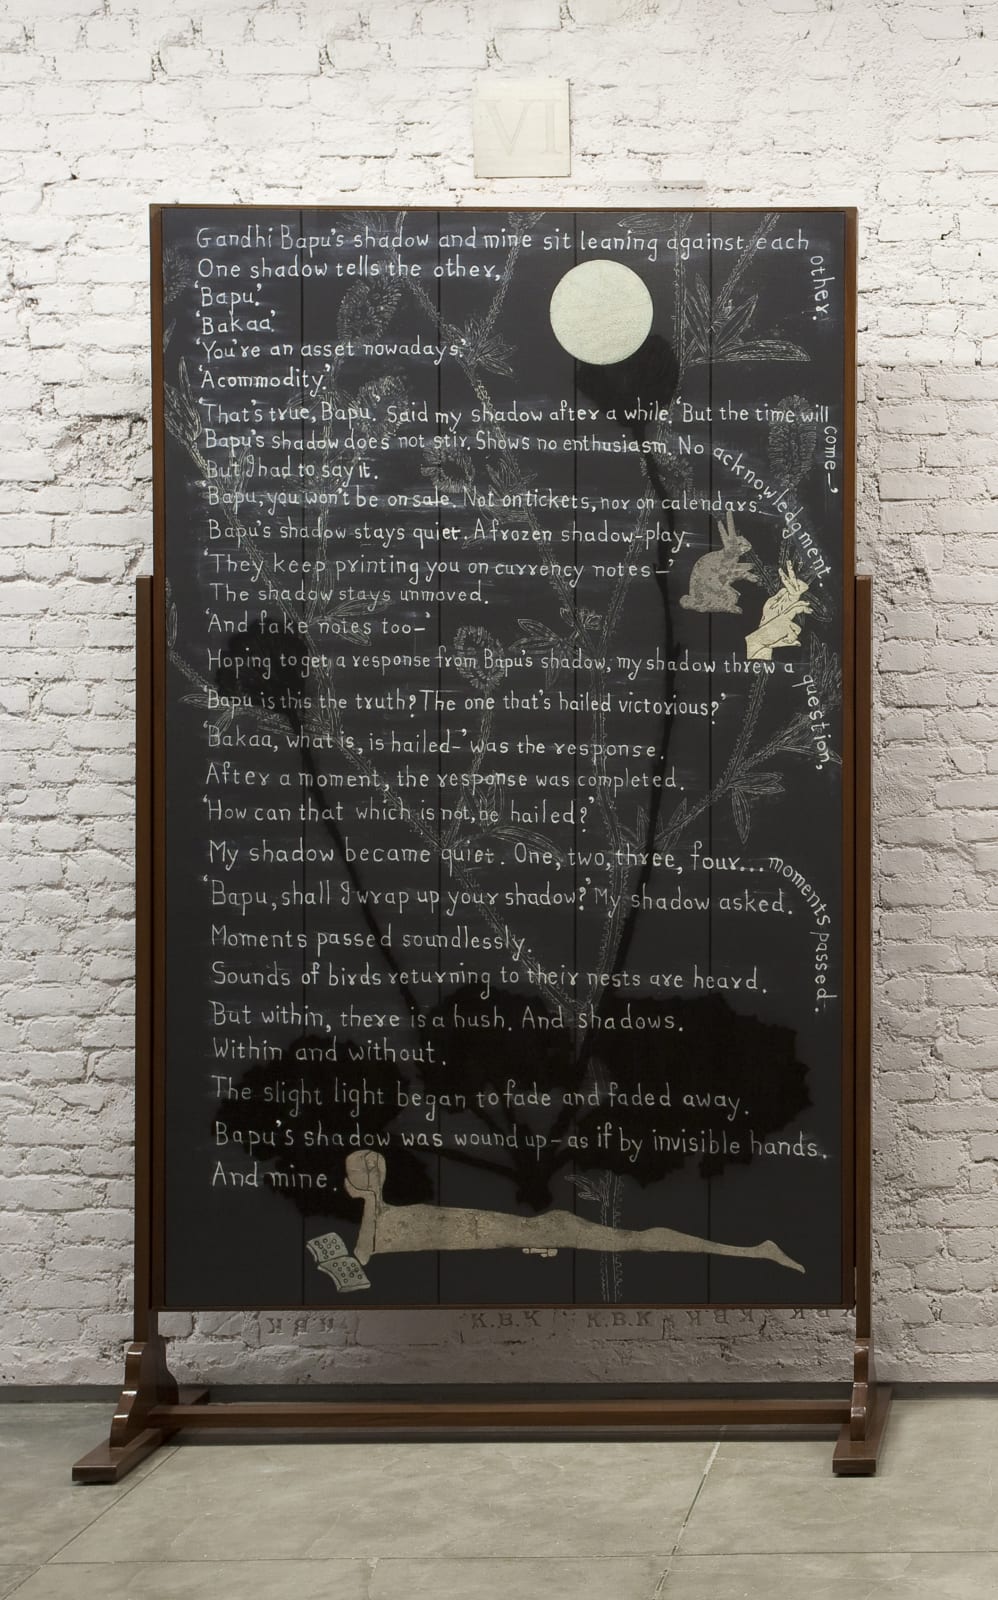 VI
Gandhi Bapu's shadow and mine sit leaning against each other.
One shadow tells the other,
'Bapu.'
'Bakaa.'
'You're an asset nowadays.'
'Acommodity.'
'That's true, Bapu.' Said my shadow after a while. 'But the time will come–'
Bapu's shadow does not stir. Shows no enthusiasm. No acknowledgment.
But I had to say it.
'Bapu, you won't be on sale. Not on tickets, nor on calendars.'
Bapu's shadow stays quiet. A frozen shadow-play.
'They keep printing you on currency notes–'
The shadow stays unmoved.
'And fake notes too–'
Hoping to get a response from Bapu's shadow, my shadow threw a question,
'Bapu is this the truth? The one that's hailed victorious?'
'Bakaa, what is, is hailed–' was the response.
After a moment, the response was completed.
'How can that which is not, be hailed?'
My shadow became quiet. One, two, three, four... moments passed.
'Bapu, shall I wrap up your shadow?' My shadow asked.
Moments passed soundlessly.
Sounds of birds returning to their nests are heard.
But within, there is a hush. And shadows.
Within and without.
The slight light began to fade and faded away.
Bapu's shadow was wound up – as if by invisible hands.
And mine.
K.B.K K.B.K